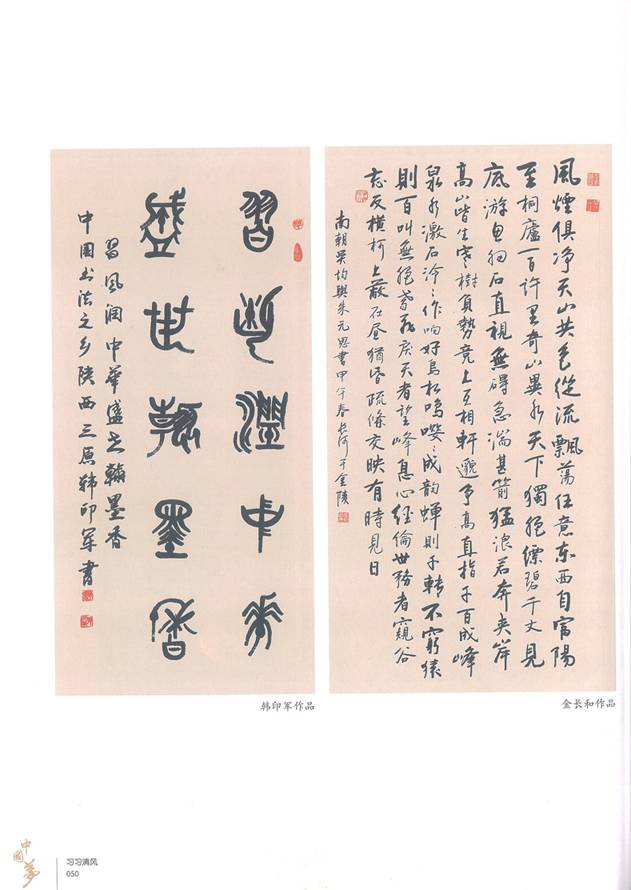 風煙俱净天山共色從流飄荡任意东西自富陽
至桐廬一百許里奇山異水天下獨絕縹碧千丈見
底游鱼细石直視無碍急湍甚箭猛浪若奔夹岸
高山皆生寒樹負勢竞上互相軒邈争高直指千百成峰
泉水激石泠〻作响好鳥相鳴嘤〻成韵蟬則千轉不窮猿
則百叫無絕鸢飛戾天者望峰息心經綸世務者窺谷
忘反横柯上蔽在昼猶昏疏條交映有時見日
南朝吴均與朱元思書甲午春长河于金陵
習風潤中華
盛世翰墨香
習風润中華盛世翰墨香
中国书法之乡陕西三原韩印军書
韩印军作品
金长和作品
中國夢
习习清风
050